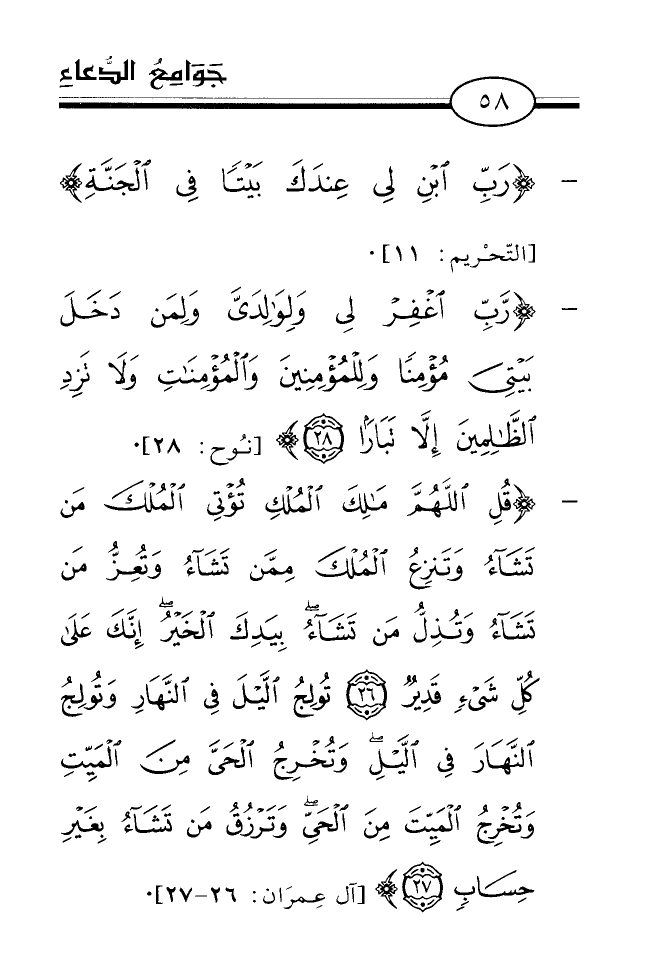 جَوَامِعُ الدُّعَاءِ
٥٨
- ﴿رَبِّ ٱبْنِ لِى عِندَكَ بَيْتًا فِى ٱلْجَنَّةِ﴾
[التَّحْرِيم: ١١].
- ﴿رَّبِّ ٱغْفِرْ لِى وَلِوَٰلِدَىَّ وَلِمَن دَخَلَ
بَيْتِىَ مُؤْمِنًا وَلِلْمُؤْمِنِينَ وَٱلْمُؤْمِنَٰتِ وَلَا تَزِدِ
ٱلظَّٰلِمِينَ إِلَّا تَبَارًۢا ٢٨﴾ [نُوح: ٢٨].
- ﴿قُلِ ٱللَّهُمَّ مَٰلِكَ ٱلْمُلْكِ تُؤْتِى ٱلْمُلْكَ مَن
تَشَآءُ وَتَنزِعُ ٱلْمُلْكَ مِمَّن تَشَآءُ وَتُعِزُّ مَن
تَشَآءُ وَتُذِلُّ مَن تَشَآءُ ۖ بِيَدِكَ ٱلْخَيْرُ ۖ إِنَّكَ عَلَىٰ
كُلِّ شَىْءٍ قَدِيرٌ ٢٦ تُولِجُ ٱلَّيْلَ فِى ٱلنَّهَارِ وَتُولِجُ
ٱلنَّهَارَ فِى ٱلَّيْلِ ۖ وَتُخْرِجُ ٱلْحَىَّ مِنَ ٱلْمَيِّتِ
وَتُخْرِجُ ٱلْمَيِّتَ مِنَ ٱلْحَىِّ ۖ وَتَرْزُقُ مَن تَشَآءُ بِغَيْرِ
حِسَابٍ ٢٧﴾ [آل عِمرَان: ٢٦-٢٧].